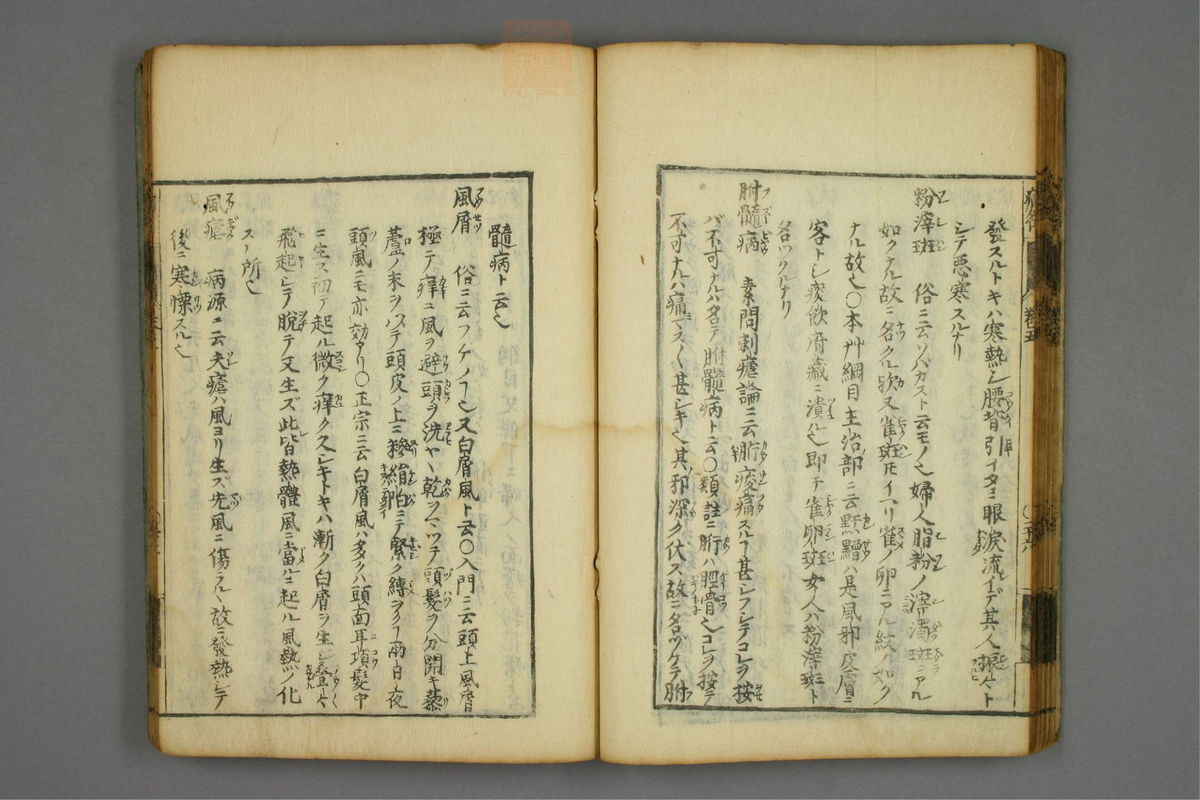 發スルトキハ寒熱シ腰背引イタミ眼涙流イデ其人振々ト
シテ悪寒スルナリ
粉滓斑 俗ニ云ソバカスト云モノ也婦人脂粉ノ滓濁斑ニアル
如クナル故ニ名クル欤又雀斑トモイヘリ雀ノ卵ニアル紋ノ如ク
ナル故也〇本艸綱目主治部ニ云䵟䵳ハ是風邪皮膚ニ
客トシ痰飲府藏ニ漬ル也即チ雀卵斑女人ハ粉滓斑ト
名ツクルナリ
胕髓病 素問刺瘧論ニ云䯒痠痛スルヿ甚シフシテコレヲ按
バ不可ナルハ名テ胕髓病ト云〇類註ニ䯒ハ脛骨也コレヲ按テ
不可ナルハ痛マスく甚シキ也其邪深ク伏ス故ニ名ツケテ胕
髓病ト云也
風屑 俗ニ云フケノヿ也又白屑風ト云〇入門ニ云頭上風屑
極テ癢ニ風ヲ避頭ヲ洗ヤ乾ヲマツテ頭髮ヲ分開キ藜
蘆ノ末ヲハステ頭皮ノ上ニ摻絹怕ニテ緊ク縛ヲクヿ兩日夜
頭風ニモ亦効アリ〇正宗ニ云白屑風ハ多クハ頭面耳項髮中
ニ生ス初テ起ル微ク癢ク久シキトキハ漸ク白屑ヲ生シ疊々
飛起シテ脫テ又生ズ此皆熱體風ニ當ルニ起ル風熱ノ化
スル所也
風瘧 病源ニ云夫瘧ハ風ヨリ生ズ先風ニ傷ラルヽ故ニ發熱シテ
後ニ寒慄スル也